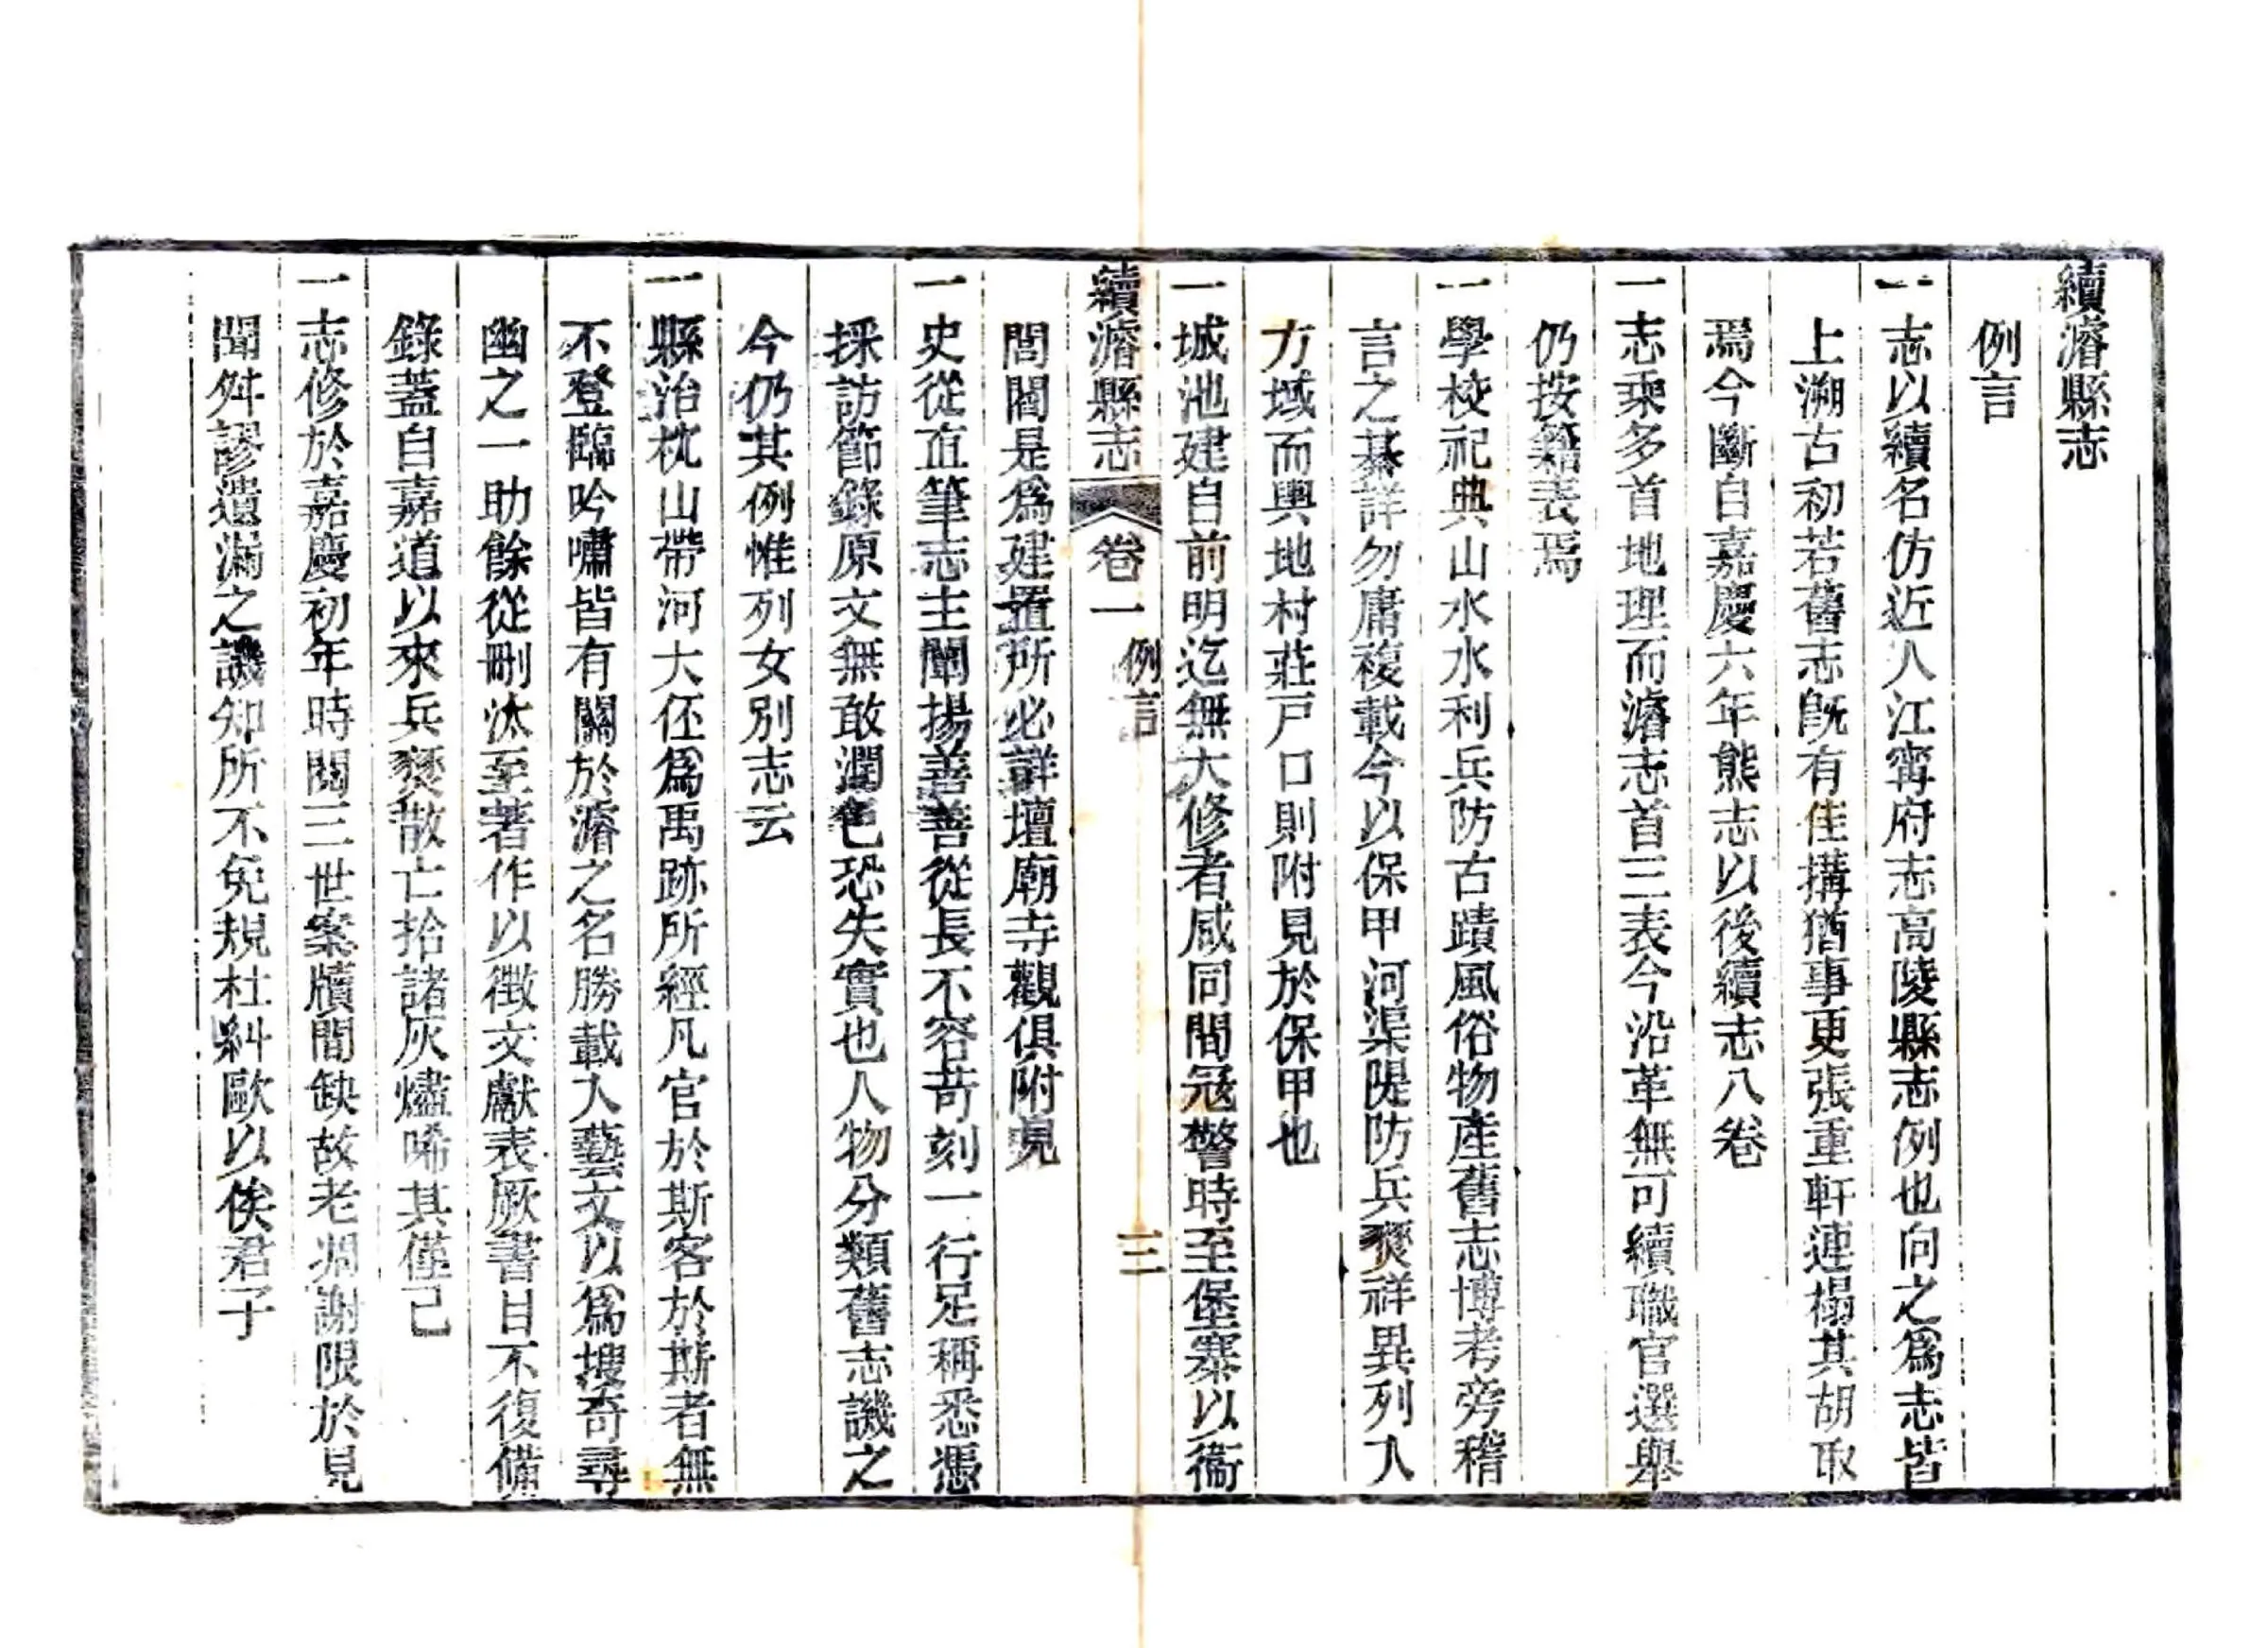 續濬縣志
例言
一志以續名仿近人江甯府志高陵縣志例也向之爲志皆
上溯古初若舊志旣有佳搆猶事更張重軒連榻其胡取
焉今斷自嘉慶六年熊志以後續志八卷
一志乘多首地理而濬志首三表今沿革無可續職官選舉
仍按籍表焉
一學校祀典山水水利兵防古蹟風俗物產舊志博考旁稽
言之綦詳勿庸複載今以保甲河渠隄防兵燹祥異列入
方域而輿地村莊戸口則附見於保甲也
一城池建自前明迄無大修者咸同間冦警時至堡寨以衞
續濬縣志
卷一
例言
三
閭閻是爲建置所必詳壇廟寺觀俱附見
一史從直筆志主闡揚善善從長不容苛刻一行足稱悉憑
採訪節錄原文無敢潤色恐失實也人物分類舊志譏之
今仍其例惟列女別志云
一縣治枕山帶河大伾爲禹跡所經凡官於斯客於斯者無
不登臨吟嘯皆有關於濬之名勝載入藝文以爲搜奇尋
幽之一助餘從刪汰至著作以徵文獻表厥書目不復備
錄蓋自嘉道以來兵燹散亡拾諸灰燼唏其僅已
一志修於嘉慶初年時閱三世案牘間缺故老凋謝限於見
聞舛謬遺漏之譏知所不免規杜糾歐以俟君子